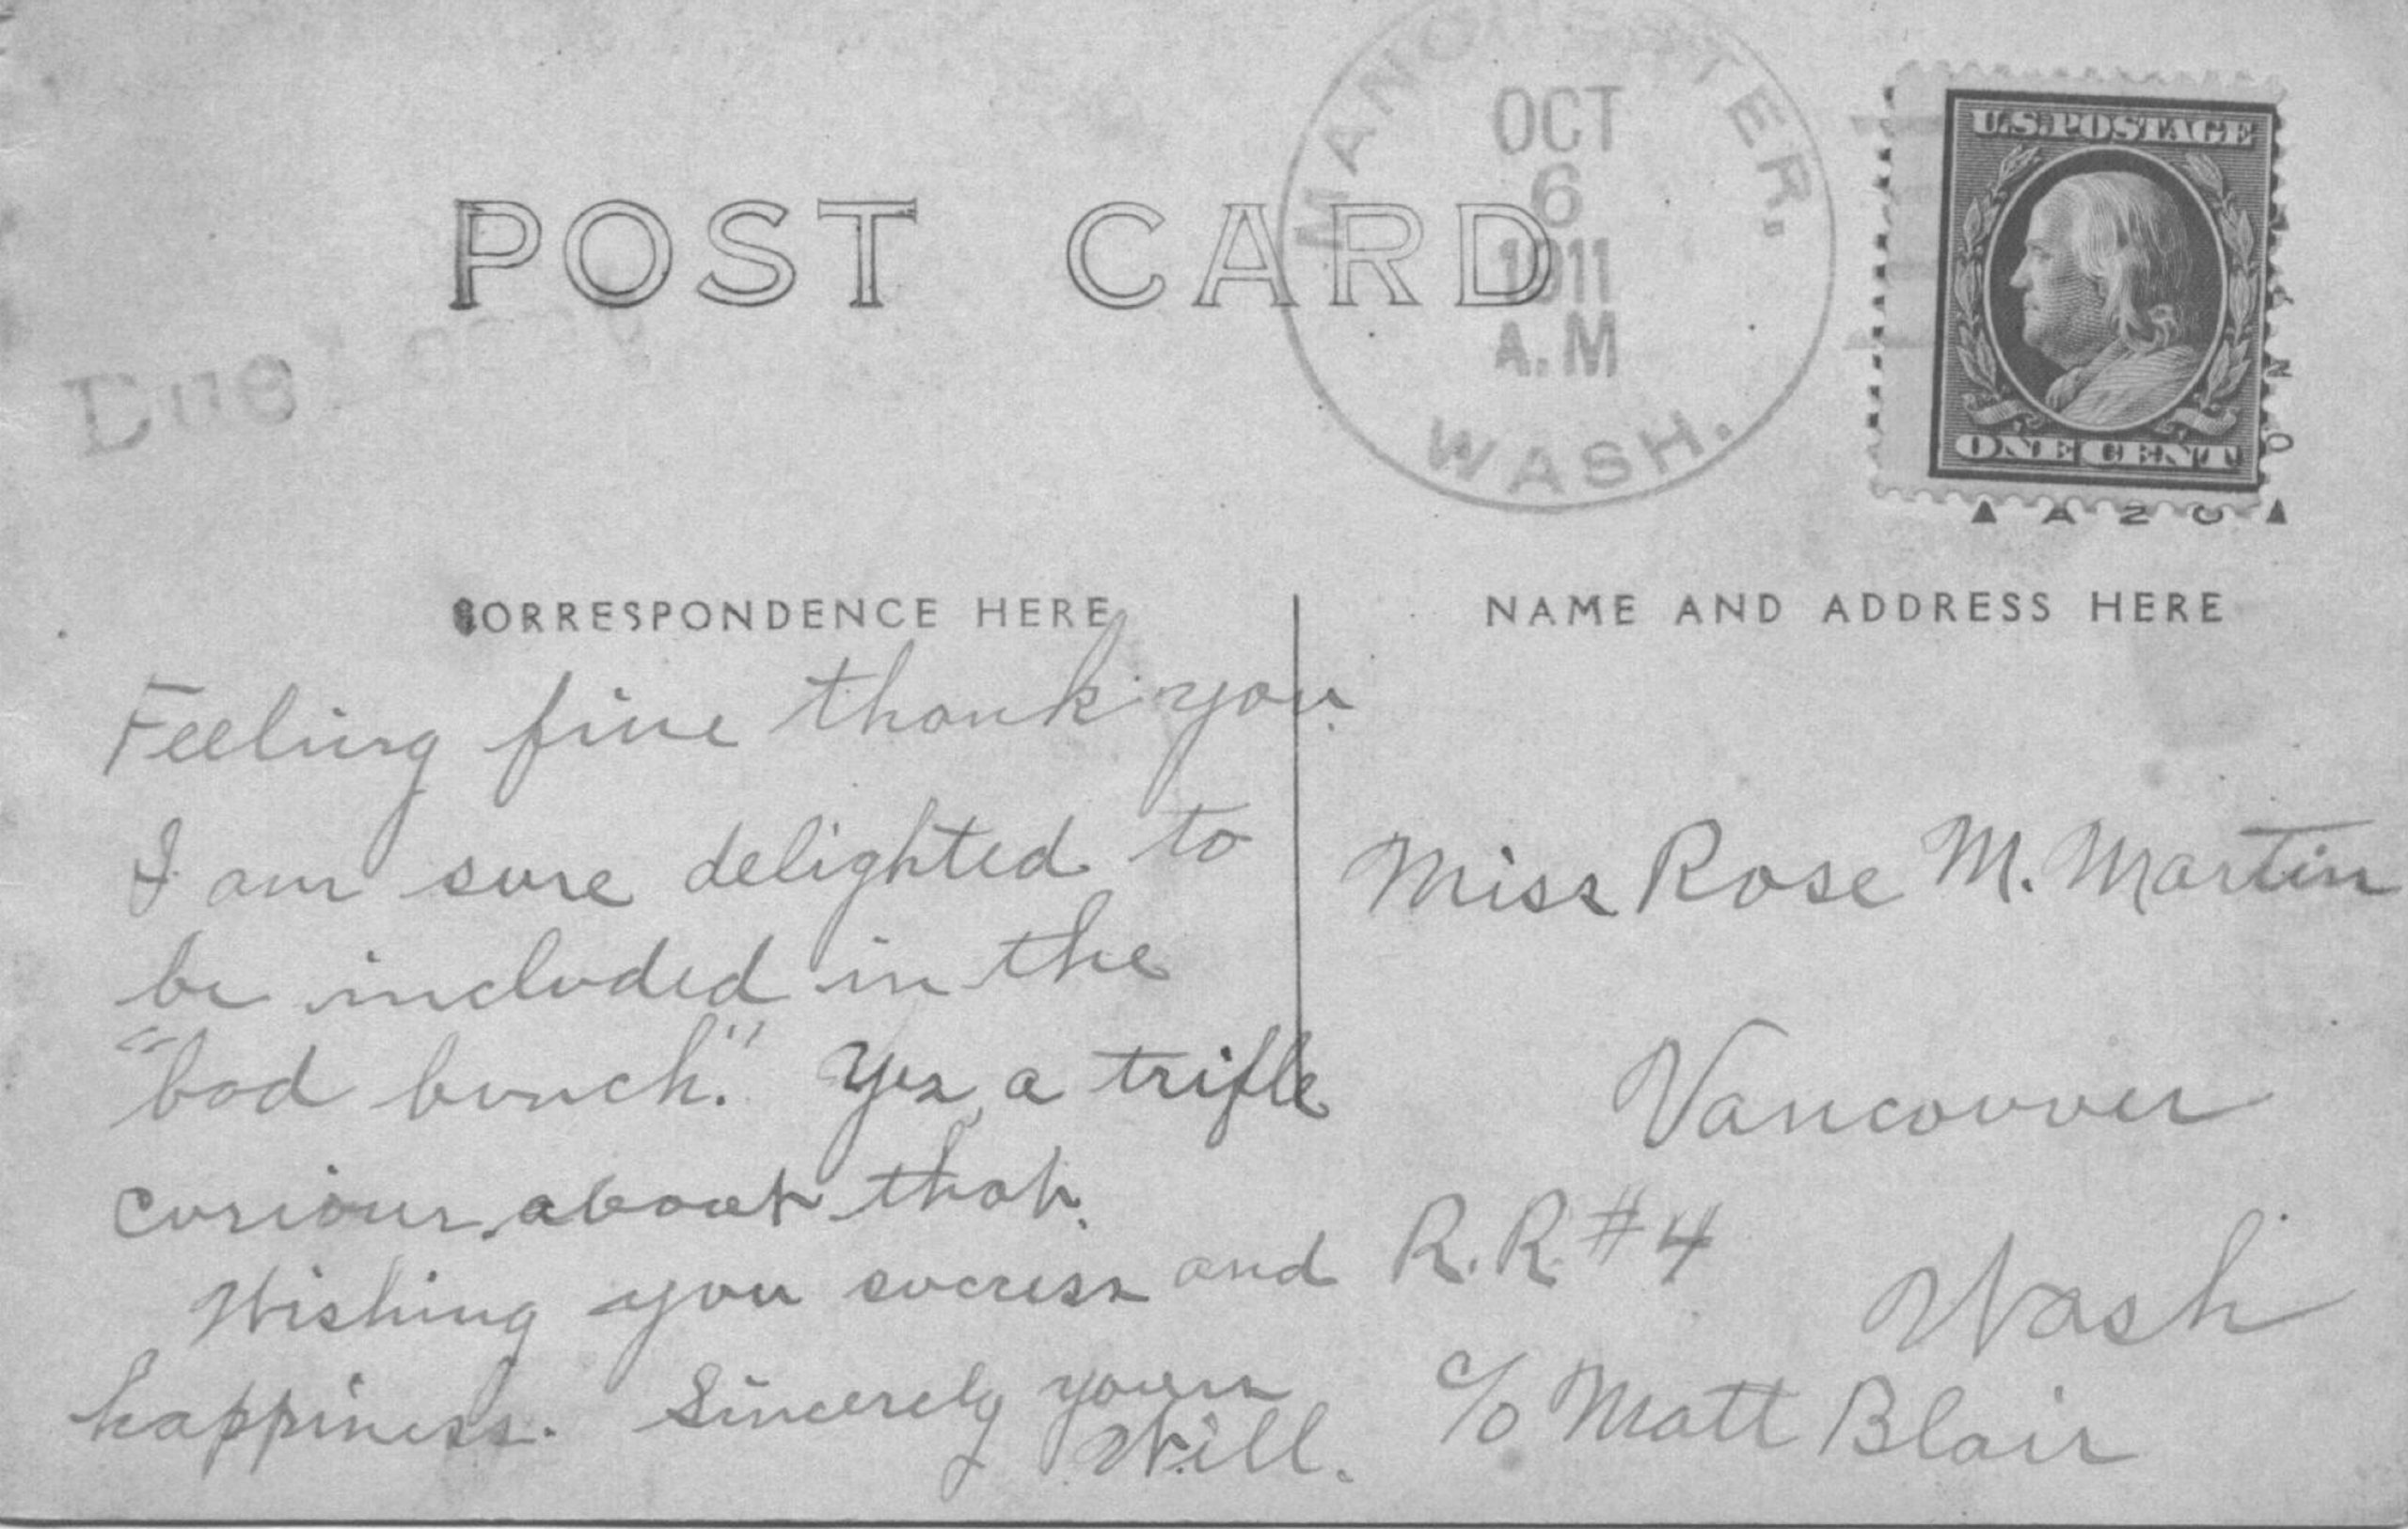 MANCHESTER.
OCT
6
1911
A.M
WASH.
U.S. POSTAGE
ONE CENT
POST CARD
Due 1 cent
CORRESPONDENCE HERE
NAME AND ADDRESS HERE
Feeling fine thank you.
I am sure delighted to
be included in the
"bad bunch." Yes, a trifle
curious about that.
Wishing you success and
happiness. Sincerely yours
Will.
Miss Rose M. Martin
Vancouver
R.R. #4
Wash
c/o Matt Blair